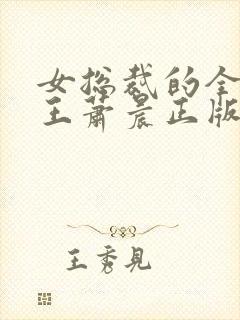 女总裁的全
王萧晨正版
王秀见